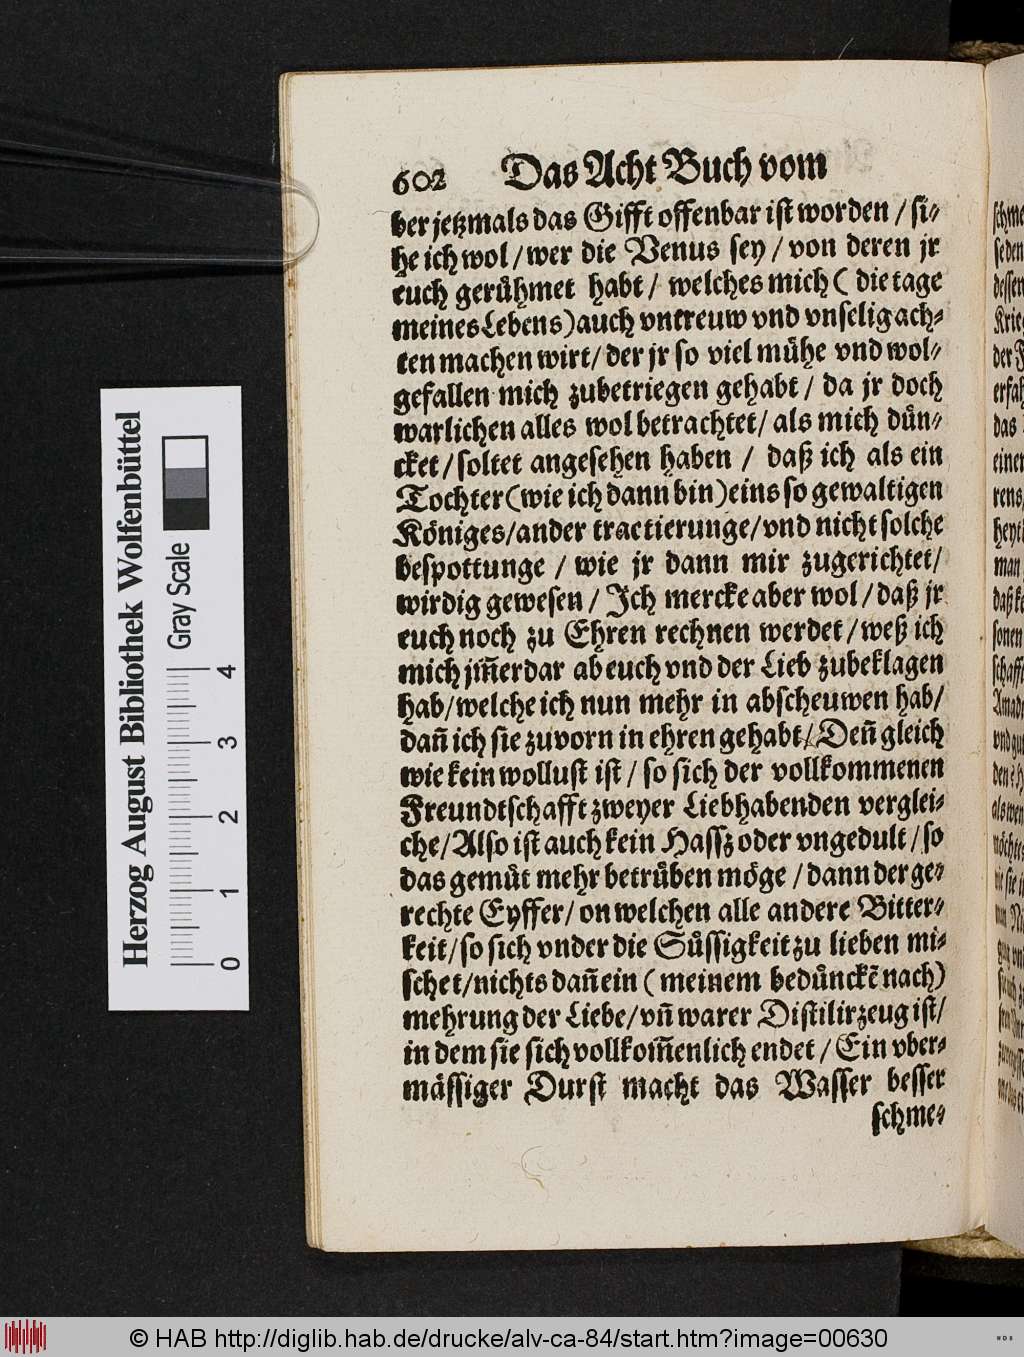 602 Das Acht Buch vom
ber jetzmals das Gifft offenbar ist worden / si-
he ich wol / wer die Venus sey / von deren jr
euch gerühmet habt / welches mich ( die tage
meines Lebens ) auch vntreuw vnd vnselig ach-
ten machen wirt / der jr so viel mühe vnd wol-
gefallen mich zubetriegen gehabt / da jr doch
warlichen alles wol betrachtet / als mich dün-
cket / soltet angesehen haben / daß ich als ein
Tochter ( wie ich dann bin ) eins so gewaltigen
Königes / ander tractierunge / vnd nicht solche
bespottunge / wie jr dann mir zugerichtet /
wirdig gewesen / Ich mercke aber wol / daß jr
euch noch zu Ehren rechnen werdet / weß ich
mich jm̃erdar ab euch vnd der Lieb zubeklagen
hab / welche ich nun mehr in abscheuwen hab /
dañ ich sie zuvorn in ehren gehabt / Deñ gleich
wie kein wollust ist / so sich der vollkommenen
Freundtschafft zweyer Liebhabenden verglei-
che / Also ist auch kein Hassz oder vngedult / so
das gemüt mehr betrüben möge / dann der ge-
rechte Eyffer / on welchen alle andere Bitter-
keit / so sich vnder die Süssigkeit zu lieben mi-
schet / nichts dañ ein ( meinem bedünckẽ nach )
mehrung der Liebe / vñ warer Distilirzeug ist /
in dem sie sich vollkom̃enlich endet / Ein vber-
mässiger Durst macht das Wasser besser
schme-
Herzog August Bibliothek Wolfenbüttel
Gray Scale
0 1 2 3 4
© HAB http://diglib.hab.de/drucke/alv-ca-84/start.htm?image=00630